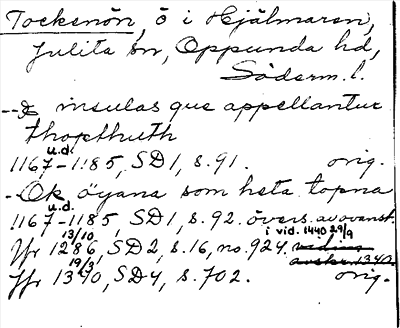 Tockenön, ö i Hjälmaren,
Julita sn, Oppunda hd,
Söderm. l.
--& insulas que appellantur
thopthuth
u.d.
1167-1185, SD1, s. 91. orig.
- Ok öyana som heta topna
u.d.
1167-1185, SD1, s. 92. övers. av ovanst.
i vid. 1440 29/9
13/10
Jfr 1286, SD2, s. 16, no. 924. vidim.
avskr. 1340.
19/3
Jfr 1340, SD4, s. 702. orig.